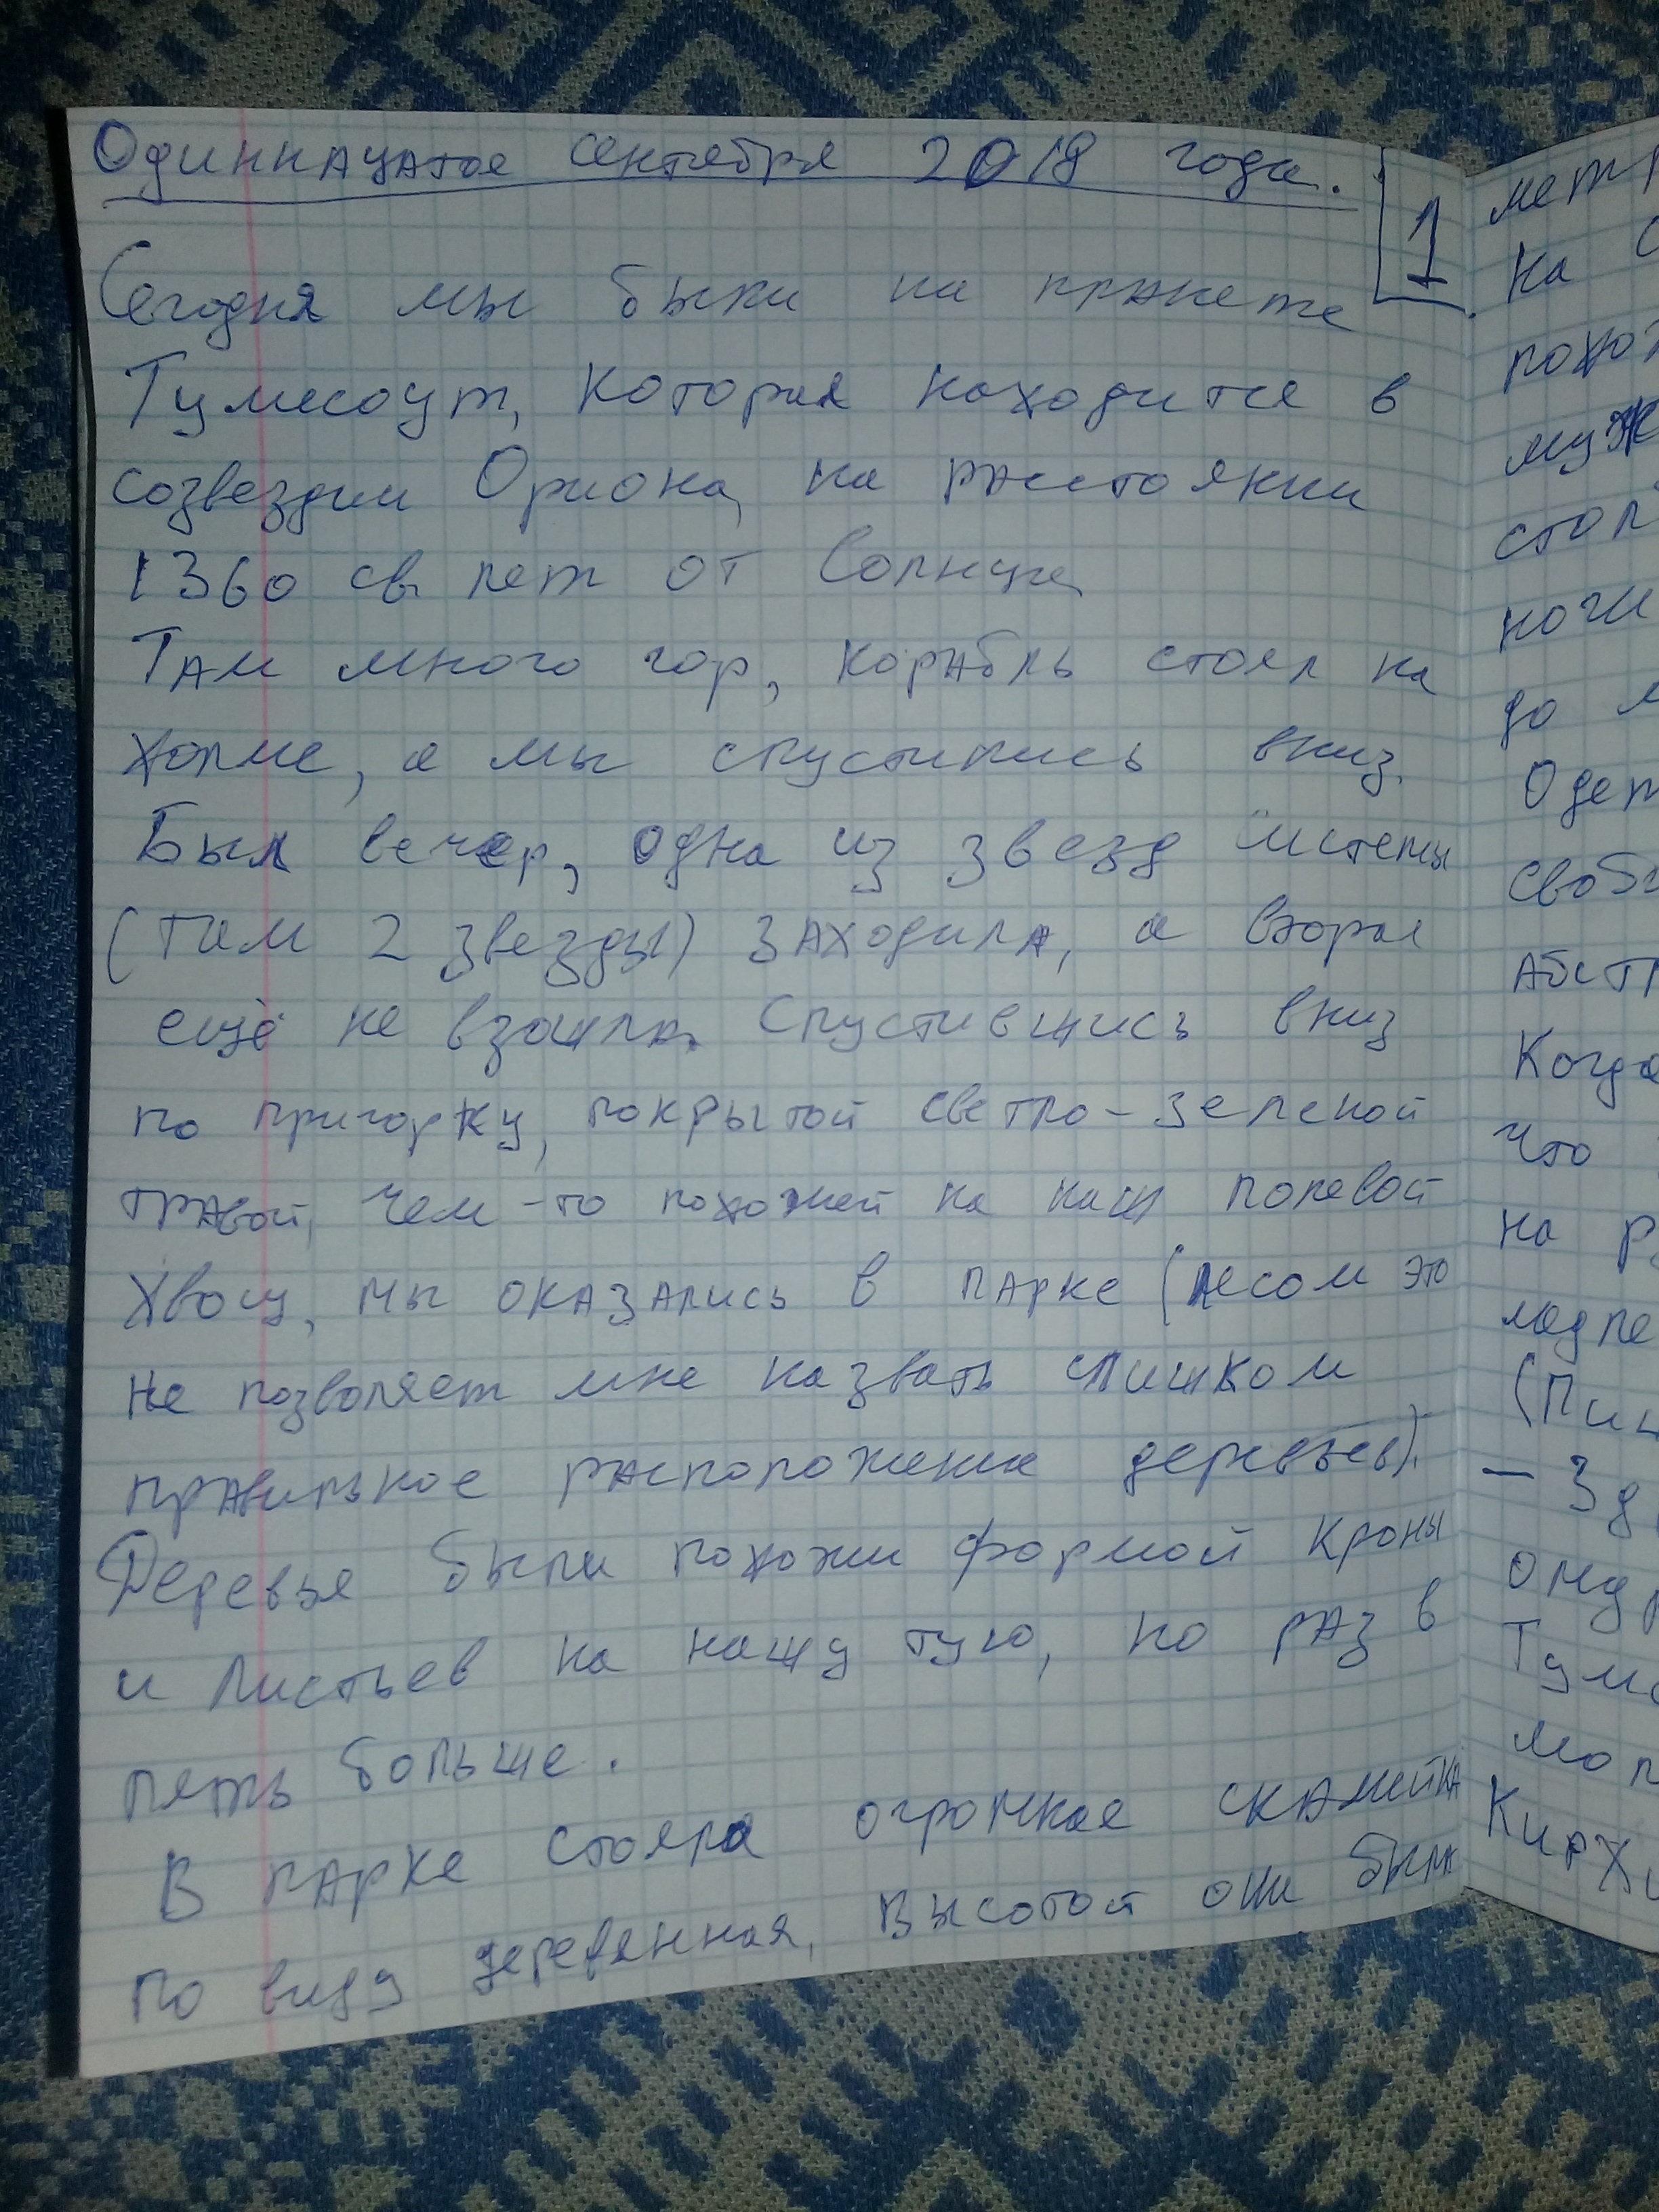 Одиннадцатое сентября 2018 года.
1
Сегодня мы были на планете
Тумесоут, которая находится в
созвездии Ориона, на расстоянии
1360 св. лет от Солнца
Там много гор, корабль стоял на
холме, а мы спустились вниз.
Был вечер, одна из звезд системы
(там 2 звезды) заходила, а вторая
ещё не взошла. Спустившись вниз
по пригорку, покрытой светло-зеленой
травой, чем-то похожей на наш полевой
хвощ, мы оказались в парке (лесом это
не позволяет мне назвать слишком
правильное расположение деревьев).
Деревья были похожи формой кроны
и листьев на нашу тую, но раз в
пять больше.
В парке стояла огромная скамейка
по виду деревянная, высотой они была
на
похо
муж
стол
ночи
до
Одет
своб
абст
Когда
что
на
(Пиц
- Зд
Тум
мол
Кирх